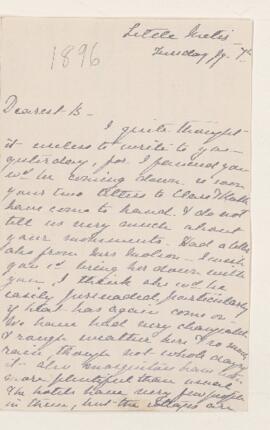 Little Metis
1896
Tuesday Jy. 7.
Dearest B—
I quite thought
it useless to write to you
yesterday, for I fancied you
wd be coming down so soon
your two letters to Clare &
have come to hand. & do not
tell us very much about
your movements. Had a letter
also from Mrs Molson — I wish
you cd bring her down with
you, I think she wd be
easily persuaded, particularly
if heat has again come on
We have had very changeable
& rough weather here & so much
rain, though not whole days
it. also mosquitoes have been
more plentiful than usual.
The hotels have very few people
in them, but the cottages are